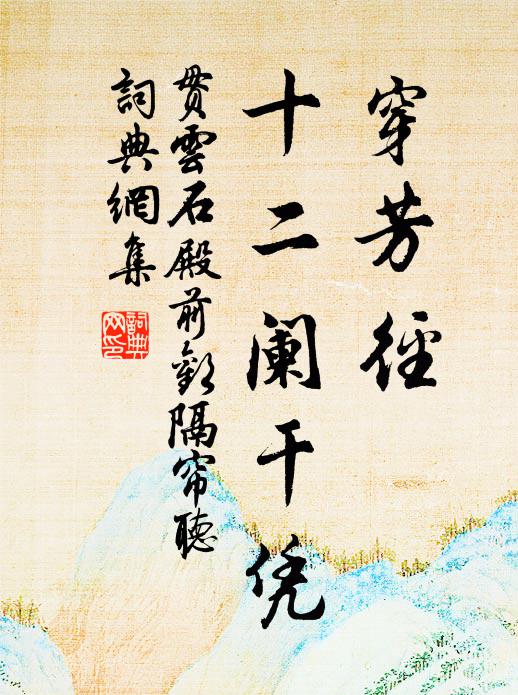 穿芳径
十二阑干凭
贯雲石殿前歡隔帘聽
詞典網集
詞典網印